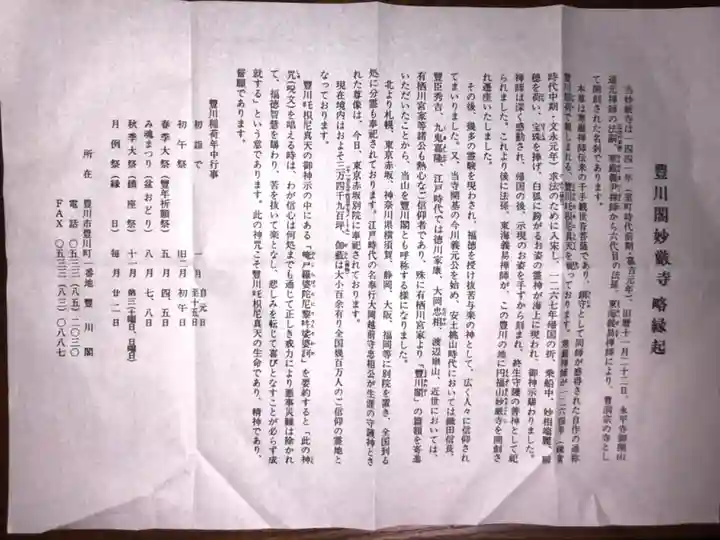 豐川閣妙嚴寺 略縁起
当妙厳寺は一四四一年(室町時代前期・嘉吉元年)、旧暦十一月二十二日、永平寺御開山
道元禅師の法嗣、寒巌義尹禅師から六代目の法孫、東海義易禅師により、曹洞宗の寺とし
て開創された名刹であります。
本尊は寒巌禅師伝来の千手観世音菩薩であり、鎮守として同師が感得された自作の通称
豊川稲荷で親しまれる、豊川吒枳尼真天を祀っております。寒巌禅師が一二六四年(鎌倉
時代中期・文永元年)求法のために入宋し、一二六七年帰国の折、乗船中、妙相端麗、稲
穂を荷い、宝珠を捧げ、白狐に跨がるお姿の霊神が海上に現われ、御神示賜わりました。
禅師は深く感動され、帰国の後、示現のお姿を手ずから刻まれ、終生守護の善神として祀
られました。これより後に法孫、東海義易禅師が、この豊川の地に円福山妙厳寺を開創さ
れ遷座いたしました。
その後、幾多の霊験を現わされ、福徳を授け抜苦与楽の神として、広く人々に信仰され
てまいりました。又、当寺開基の今川義元公を始め、安土桃山時代においては織田信長、
豐臣秀吉、九鬼嘉隆、江戸時代では徳川家康、大岡忠相、渡辺崋山、近世においては、
有栖川宮家等諸公も熱心なご信仰者であり、殊に有栖川宮家より「豐川閣」の篇額を寄進
いただいたことから、当山を豐川閣とも呼称する様になりました。
北より札幌、東京赤坂、神奈川県横須賀、静岡、大阪、福岡等に別院を置き、全国到る
処に分靈も奉祀されております。江戸時代の名奉行大岡越前守忠相公が生涯の守護神とさ
れた尊像は、今日、東京赤坂別院に奉祀されております。
現在境内はおよそ三万四千九百坪、伽藍は大小百余有り全国幾百万人のご信仰の霊地と
なっております。
豐川吒枳尼真天の御神示の中にある「唵尸羅婆陀尼黎吽娑婆訶」を要約すると「此の神
咒(呪文)を唱える時は、わが信心は何処までも通じて正しき戒力により悪事災難は除かれ
て、福徳智慧を賜わり、苦を抜いて楽となし、悲しみを転じて喜びとなすことが必らず成
就する」という意であります。此の神咒こそ豐川吒枳尼真天の生命であり、精神であり、
誓願であります。
豐川稲荷年中行事
初詣で 一月 自元日 至十五日
初午祭 旧二月 初午
春季大祭(豐年祈願祭) 五月 四、五
み魂まつり(盆おどり) 八月 七、八
秋季大祭(鎮座祭) 十一月 第三土曜日、日曜日
月例祭(縁日) 毎月 廿二日
所在 豊川市豊川町一番地 豐川閣
電話 〇五三三(八五)二〇三〇
FAX 〇五三三(八三)〇八八七